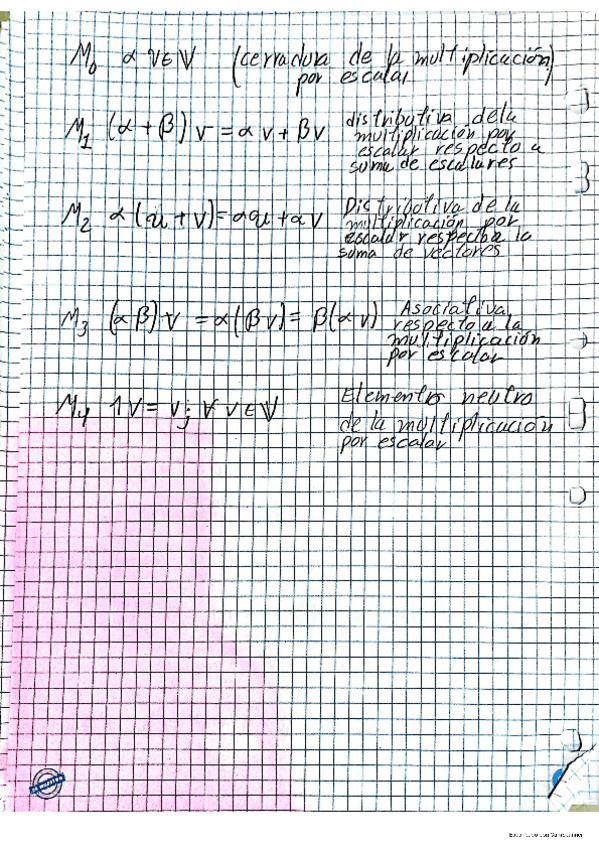 M₀ α v ∈ V (cerradura de la multiplicación)
por escalar
M₁ (α + β) v = α v + β v distributiva dela
multiplicación por
escalar respecto a
suma de escalares
M₂ α (u + v) = αu + α v Distributiva de la
multiplicación por
escalar respecto a la
suma de vectores
M₃ (α β) v = α (β v) = β (α v) Asociativa
respecto a la
multiplicación
por escalar
M₄ 1 v = v; ∀ v ∈ V Elemento neutro
de la multiplicación
por escalar